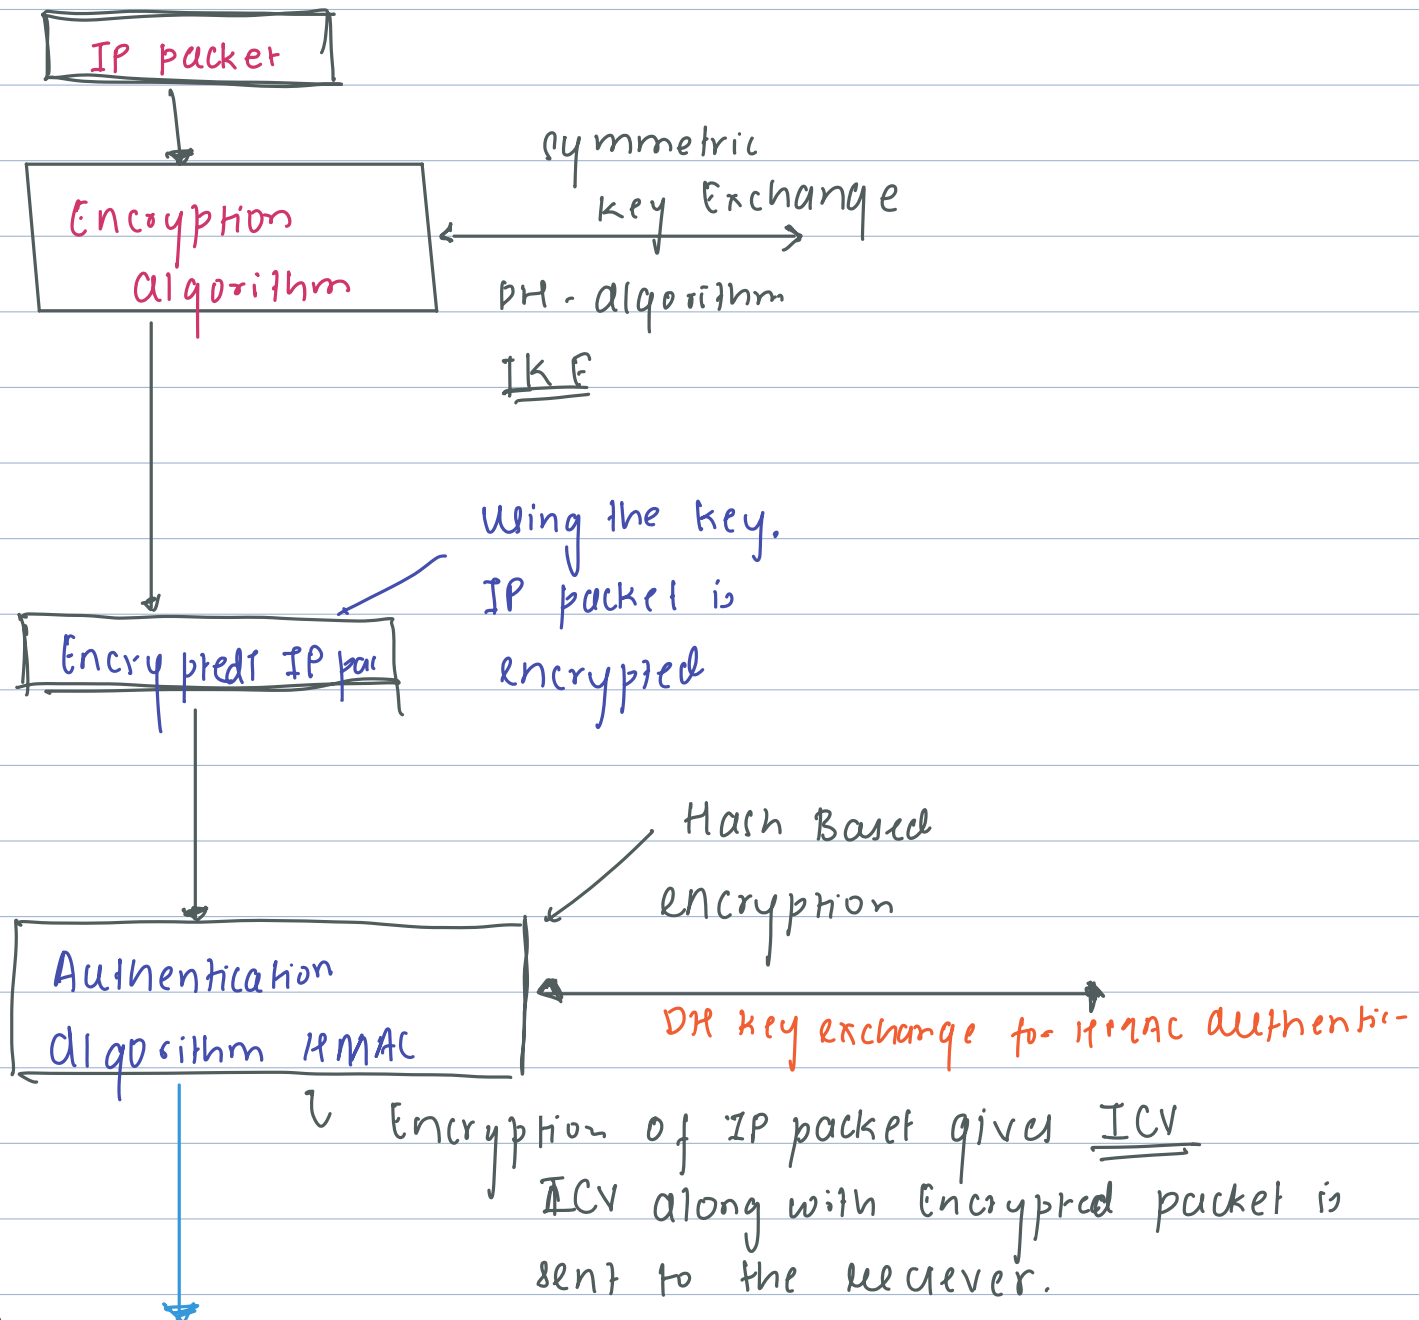 IP packet
symmetric
key Exchange
Encryption
algorithm
DH - algorithm
IKE
Using the key.
IP packet is
encrypted
Encryptedt IP pac
Hash Based
encryption
Authentication
algorithm HMAC
DH key exchange for HMAC authentic-
Encryption of IP packet gives ICV
ICV along with Encrypted packet is
sent to the reciever.